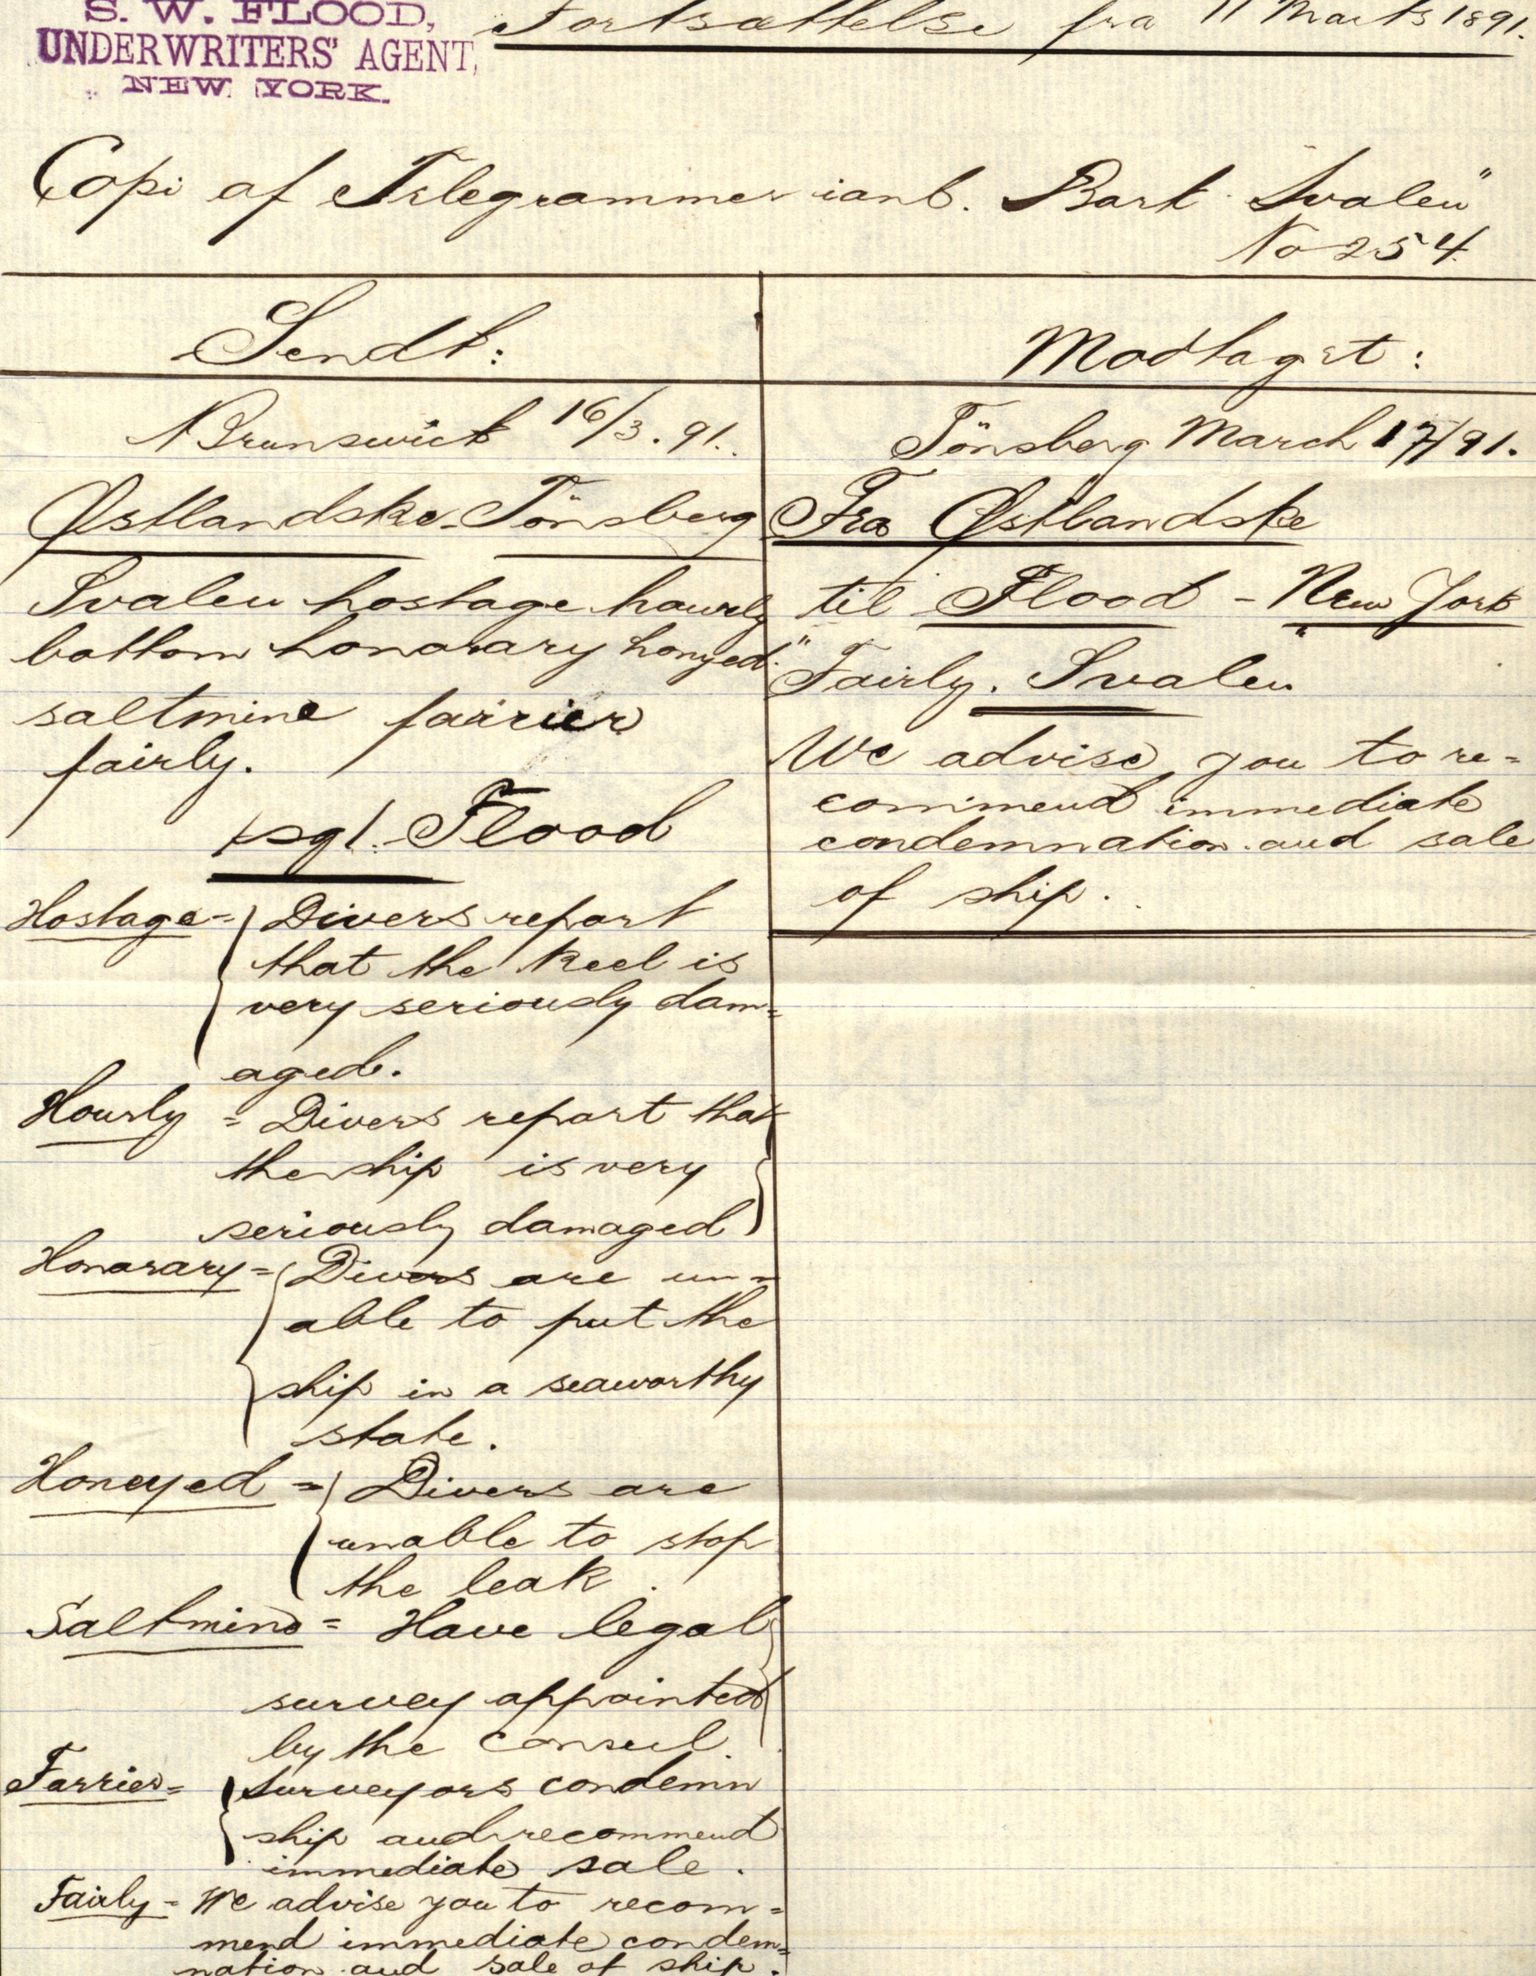 S. W. FLOOD,
UNDERWRITERS' AGENT,
NEW YORK.
Fortsættelse fra 11 Marts 1891.
Copi af Telegrammer ianl. Bark "Svalen"
No 254
Sendt:
N Brunswick 16/3. 91.
Østlandske - Tönsberg
Svalen hostage hourly
bottom honorary honyed
saltmine farrier
fairly.
sgl. Flood
Hostage = Divers report
that the keel is
very seriously dam=
aged.
Hourly = Divers report that
the ship is very
seriously damaged
Honorary = Divers are un=
able to put the
ship in a seaworthy
state.
Honeyed = Divers are
unable to stop
the leak.
Saltmine = Have legal
survey appointed
by the Consul.
Farrier = Surveyors condemn
ship and recommend
immediate sale.
Fairly = We advise you to recom=
mend immediate condem=
nation and sale of ship.
Modtaget:
Tönsberg March 17/91.
Fra Østlandske
til Flood - New York
"Fairly. Svalen"
We advise you to re=
commend immediate
condemnation and sale
of ship.